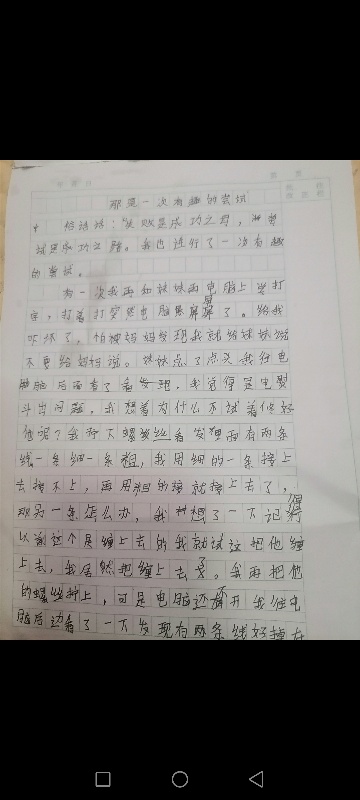 那是一次有趣的尝试
俗话说："失败是成功之母，尝
试是成功之路。我也进行了一次有趣
的尝试。
有一次我再和妹妹再电脑上学打
字，打着打突然电脑黑屏了。给我
吓坏了，怕被妈妈发现我就给妹妹说
不要给妈妈说。妹妹点了点头我往电
脑后面看了看发现，我觉得是电
出问题，我想着为什么不试着修好
他呢？我拧下螺丝看发现面有两条
线一条细一条粗，我用细的一条接上
去接不上，再用粗的接就接上去了，
那另一条怎么办，我想了一下记得
以前这个是缠上去的我就试这把他缠
上去，我居然把缠上去了。我再把他
的螺丝拧上，可是电脑还不开我往电
脑后边看了一下发现有两条线好掉在